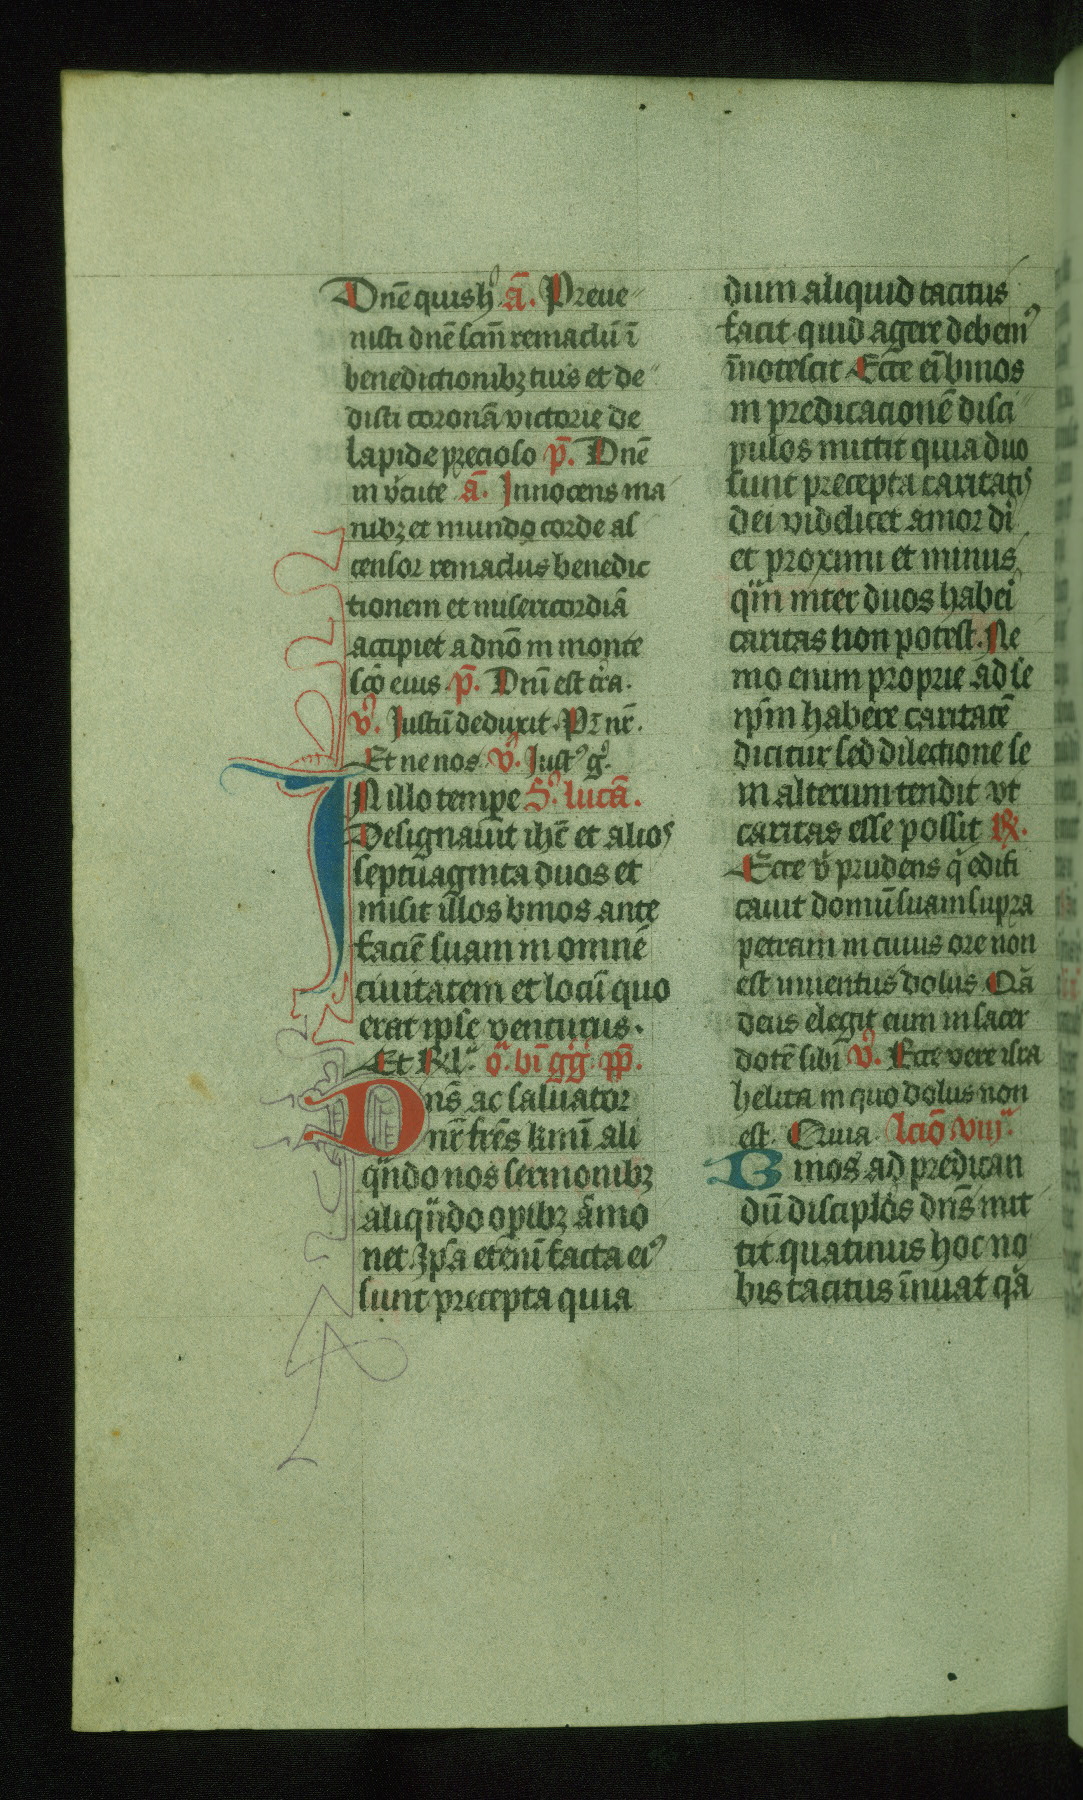 Dnē quis hˀ. ā. Preue
nisti dnē scm̄ remaclū ī
benedictionibꝫ tuis et de
disti coronā victorie de
lapide precioso p̄. Dnē
in v̾tute ā. Innocens ma
nibꝫ et mundo corde as
censor remaclus benedic
tionem et misericordiā
accipiet a dnō in monte
scō eius. p̄. Dnī est t̾ra.
v̾. Iustū deduxit. Pr̄ nr̄.
Et ne nos v̾. Iustꝰ gͦ.
IN illo tempe S. lucā.
Designauit ihē et alios
septuaginta duos et
misit illos binos ante
faciē suam in omnē
ciuitatem et locū quo
erat ip̄se venturus.
Et Rˡ. o. bī gḡ. pp̄.
Dns̄ ac saluator
nr̄ frēs kmī ali
qn̄do nos sermonibꝫ
aliqn̄do opibꝫ āmo
net Ipsa etenī facta eiꝰ
sunt precepta quia
dum aliquid tacitus
facit quid agere debemꝰ
īnotescit Ecce eī binos
in predicacionē disci
pulos mittit quia duo
sunt precepta caritatis
dei videlicet amor di
et proximi et minus
qm̄ inter duos habei
caritas non potest. Ne
mo enim proprie ad se
ip̄m habere caritatē
dicitur sed dilectione se
in alterum tendit vt
caritas esse possit R.
Ecce v̾ prudens q̄ edifi
cauit domū suam supra
petram in cuius ore non
est inuentus dolus Qā
deus elegit eum in sacer
dotē sibi v̾. Ecce vere isra
helita in quo dolus non
est. Quia. lcīo viij.
Binos ad predican
dū discipl̾os dns̄ mit
tit quatinus hoc no
bis tacitus īnuat qā